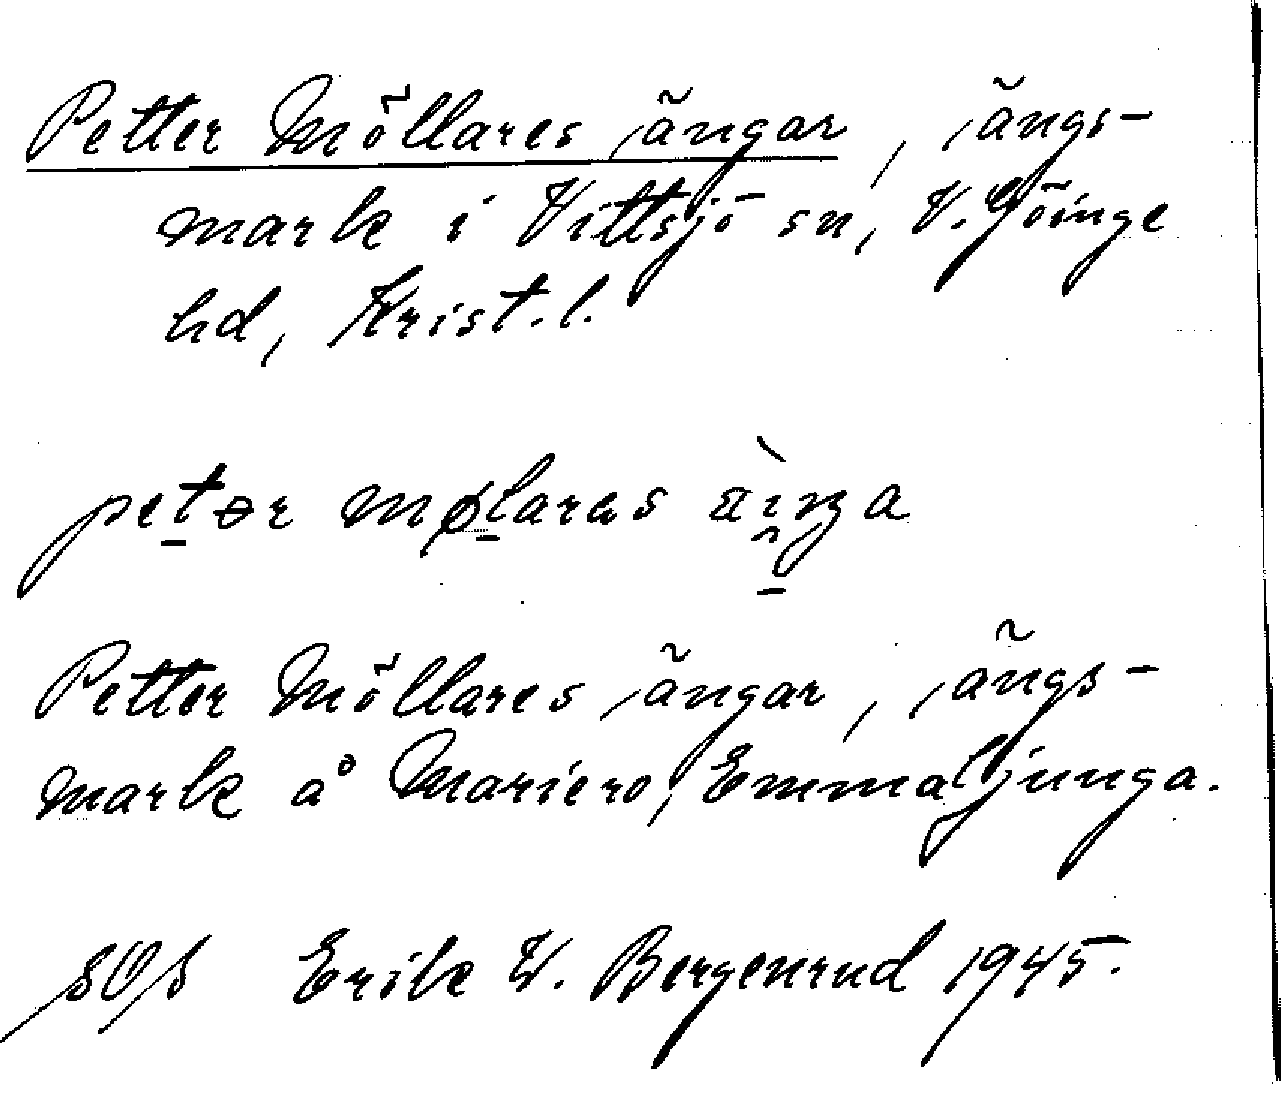 Petter Möllares ängar, ängs-
mark i Vittsjö sn, V. Göinge
hd, Krist. l.
petər mølaras äiŋa
Petter Möllares ängar, ängs-
mark å Mariero, Emmaljunga.
SOS Erik W. Bergenrud 1945.